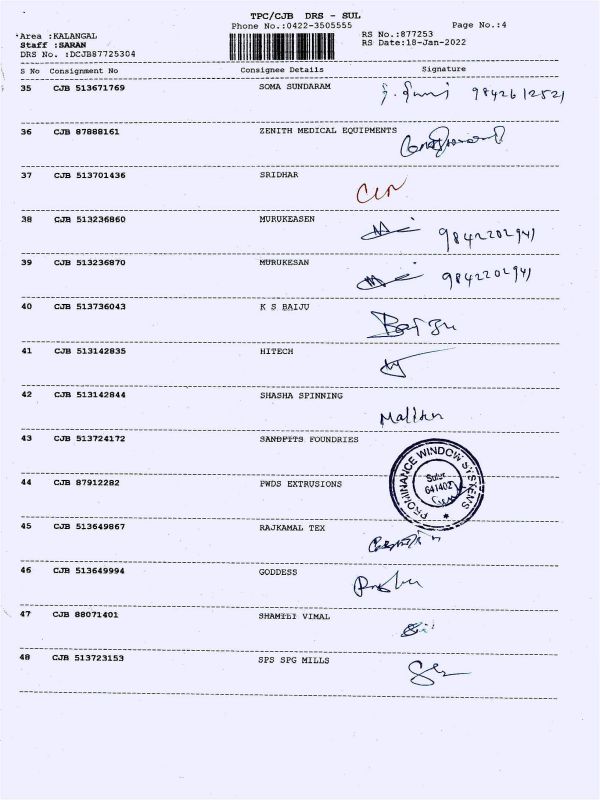 TPC/CJB DRS - SUL
Phone No.:0422-3505555 Page No.:4
Area :KALANGAL RS No.:877253
Staff :SARAN RS Date:18-Jan-2022
DRS No. :DCJB87725304
S No Consignment No Consignee Details Signature
35 CJB 513671769 SOMA SUNDARAM 9842612521
36 CJB 87888161 ZENITH MEDICAL EQUIPMENTS
37 CJB 513701436 SRIDHAR
38 CJB 513236860 MURUKEASEN 9842202941
39 CJB 513236870 MURUKESAN 9842202941
40 CJB 513736043 K S BAIJU Baiju
41 CJB 513142835 HITECH
42 CJB 513142844 SHASHA SPINNING
43 CJB 513724172 SANDFITS FOUNDRIES
44 CJB 87912282 PWDS EXTRUSIONS
PROMINANCE WINDOW SYSTEMS
Sulur
641402
45 CJB 513649867 RAJKAMAL TEX
46 CJB 513649994 GODDESS
47 CJB 88071401 VIMAL
48 CJB 513723153 SPS SPG MILLS